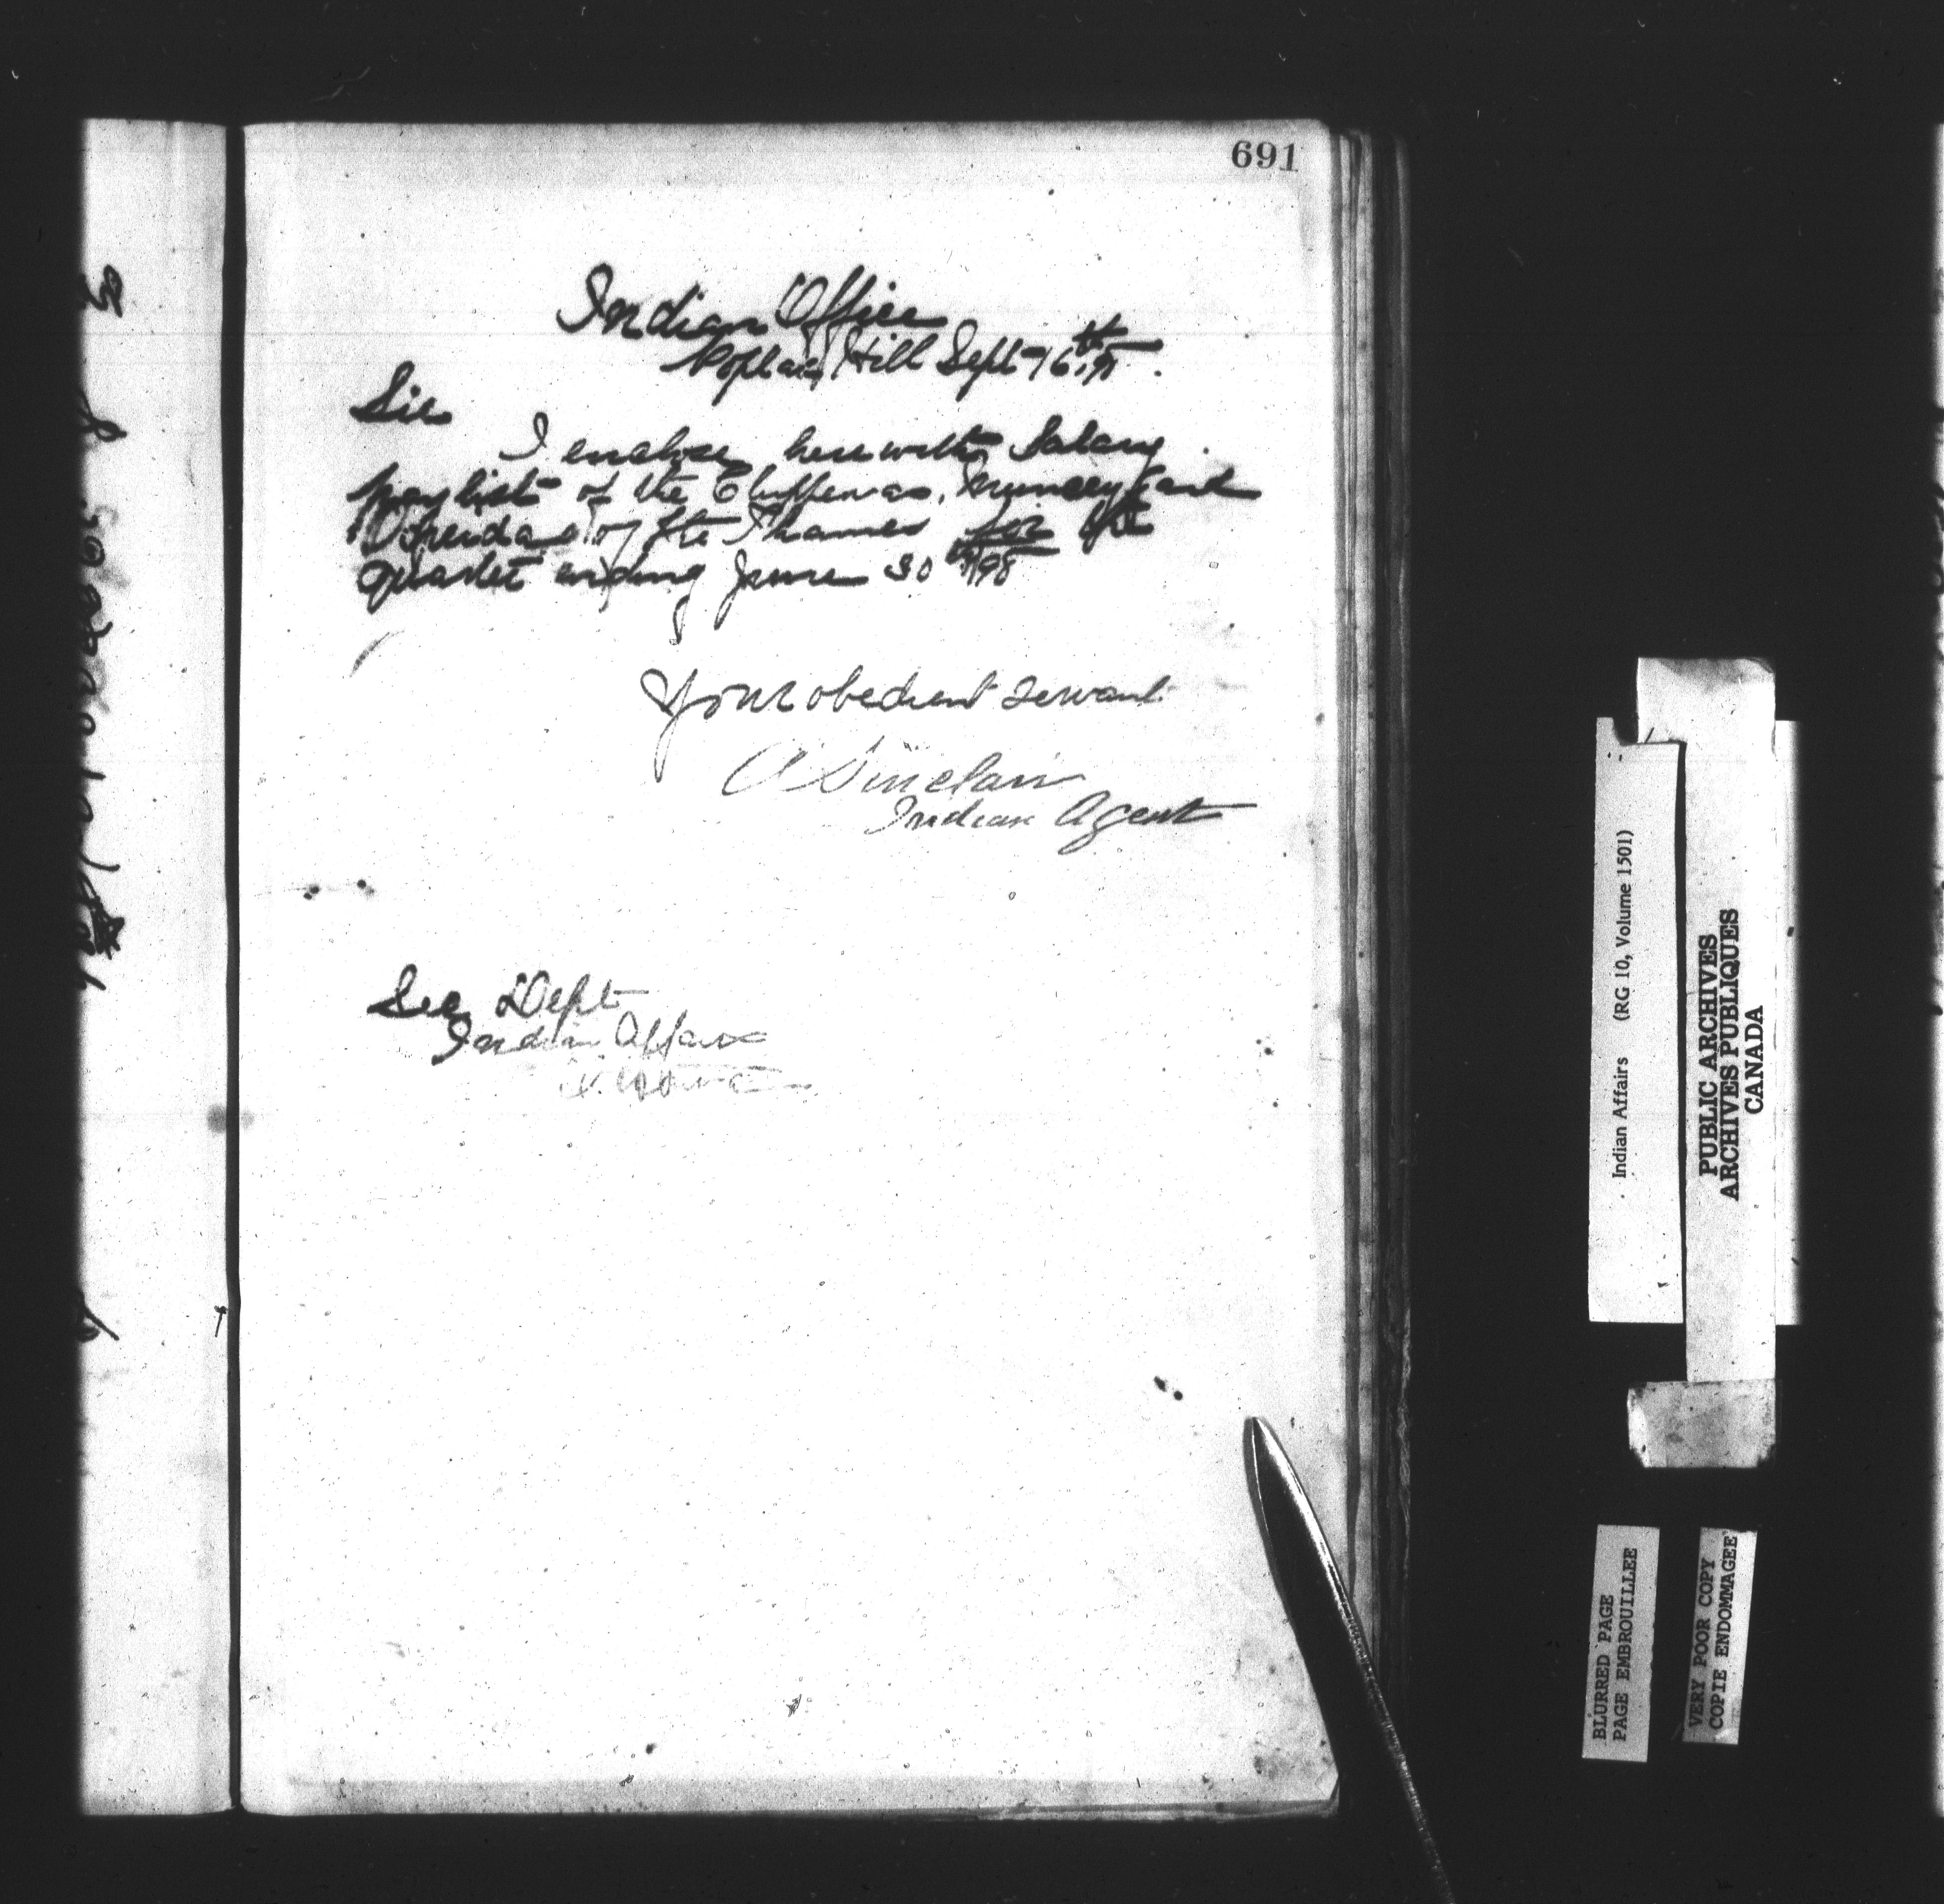 691
Indian Office
Poplar Hill Sept 16th
Sir
I enclose herewith Salary
pay list of the Chippewas, Munceys and
Oneidas of the Thames for the
quarter ending June 30th 98
Your obedient servant
A Sinclair
Indian Agent
Sec Dept
Indian Affairs
Indian Affairs (RG 10, Volume 1501)
PUBLIC ARCHIVES
ARCHIVES PUBLIQUES
CANADA
BLURRED PAGE
PAGE EMBROUILLEE
VERY POOR COPY
COPIE ENDOMMAGEE